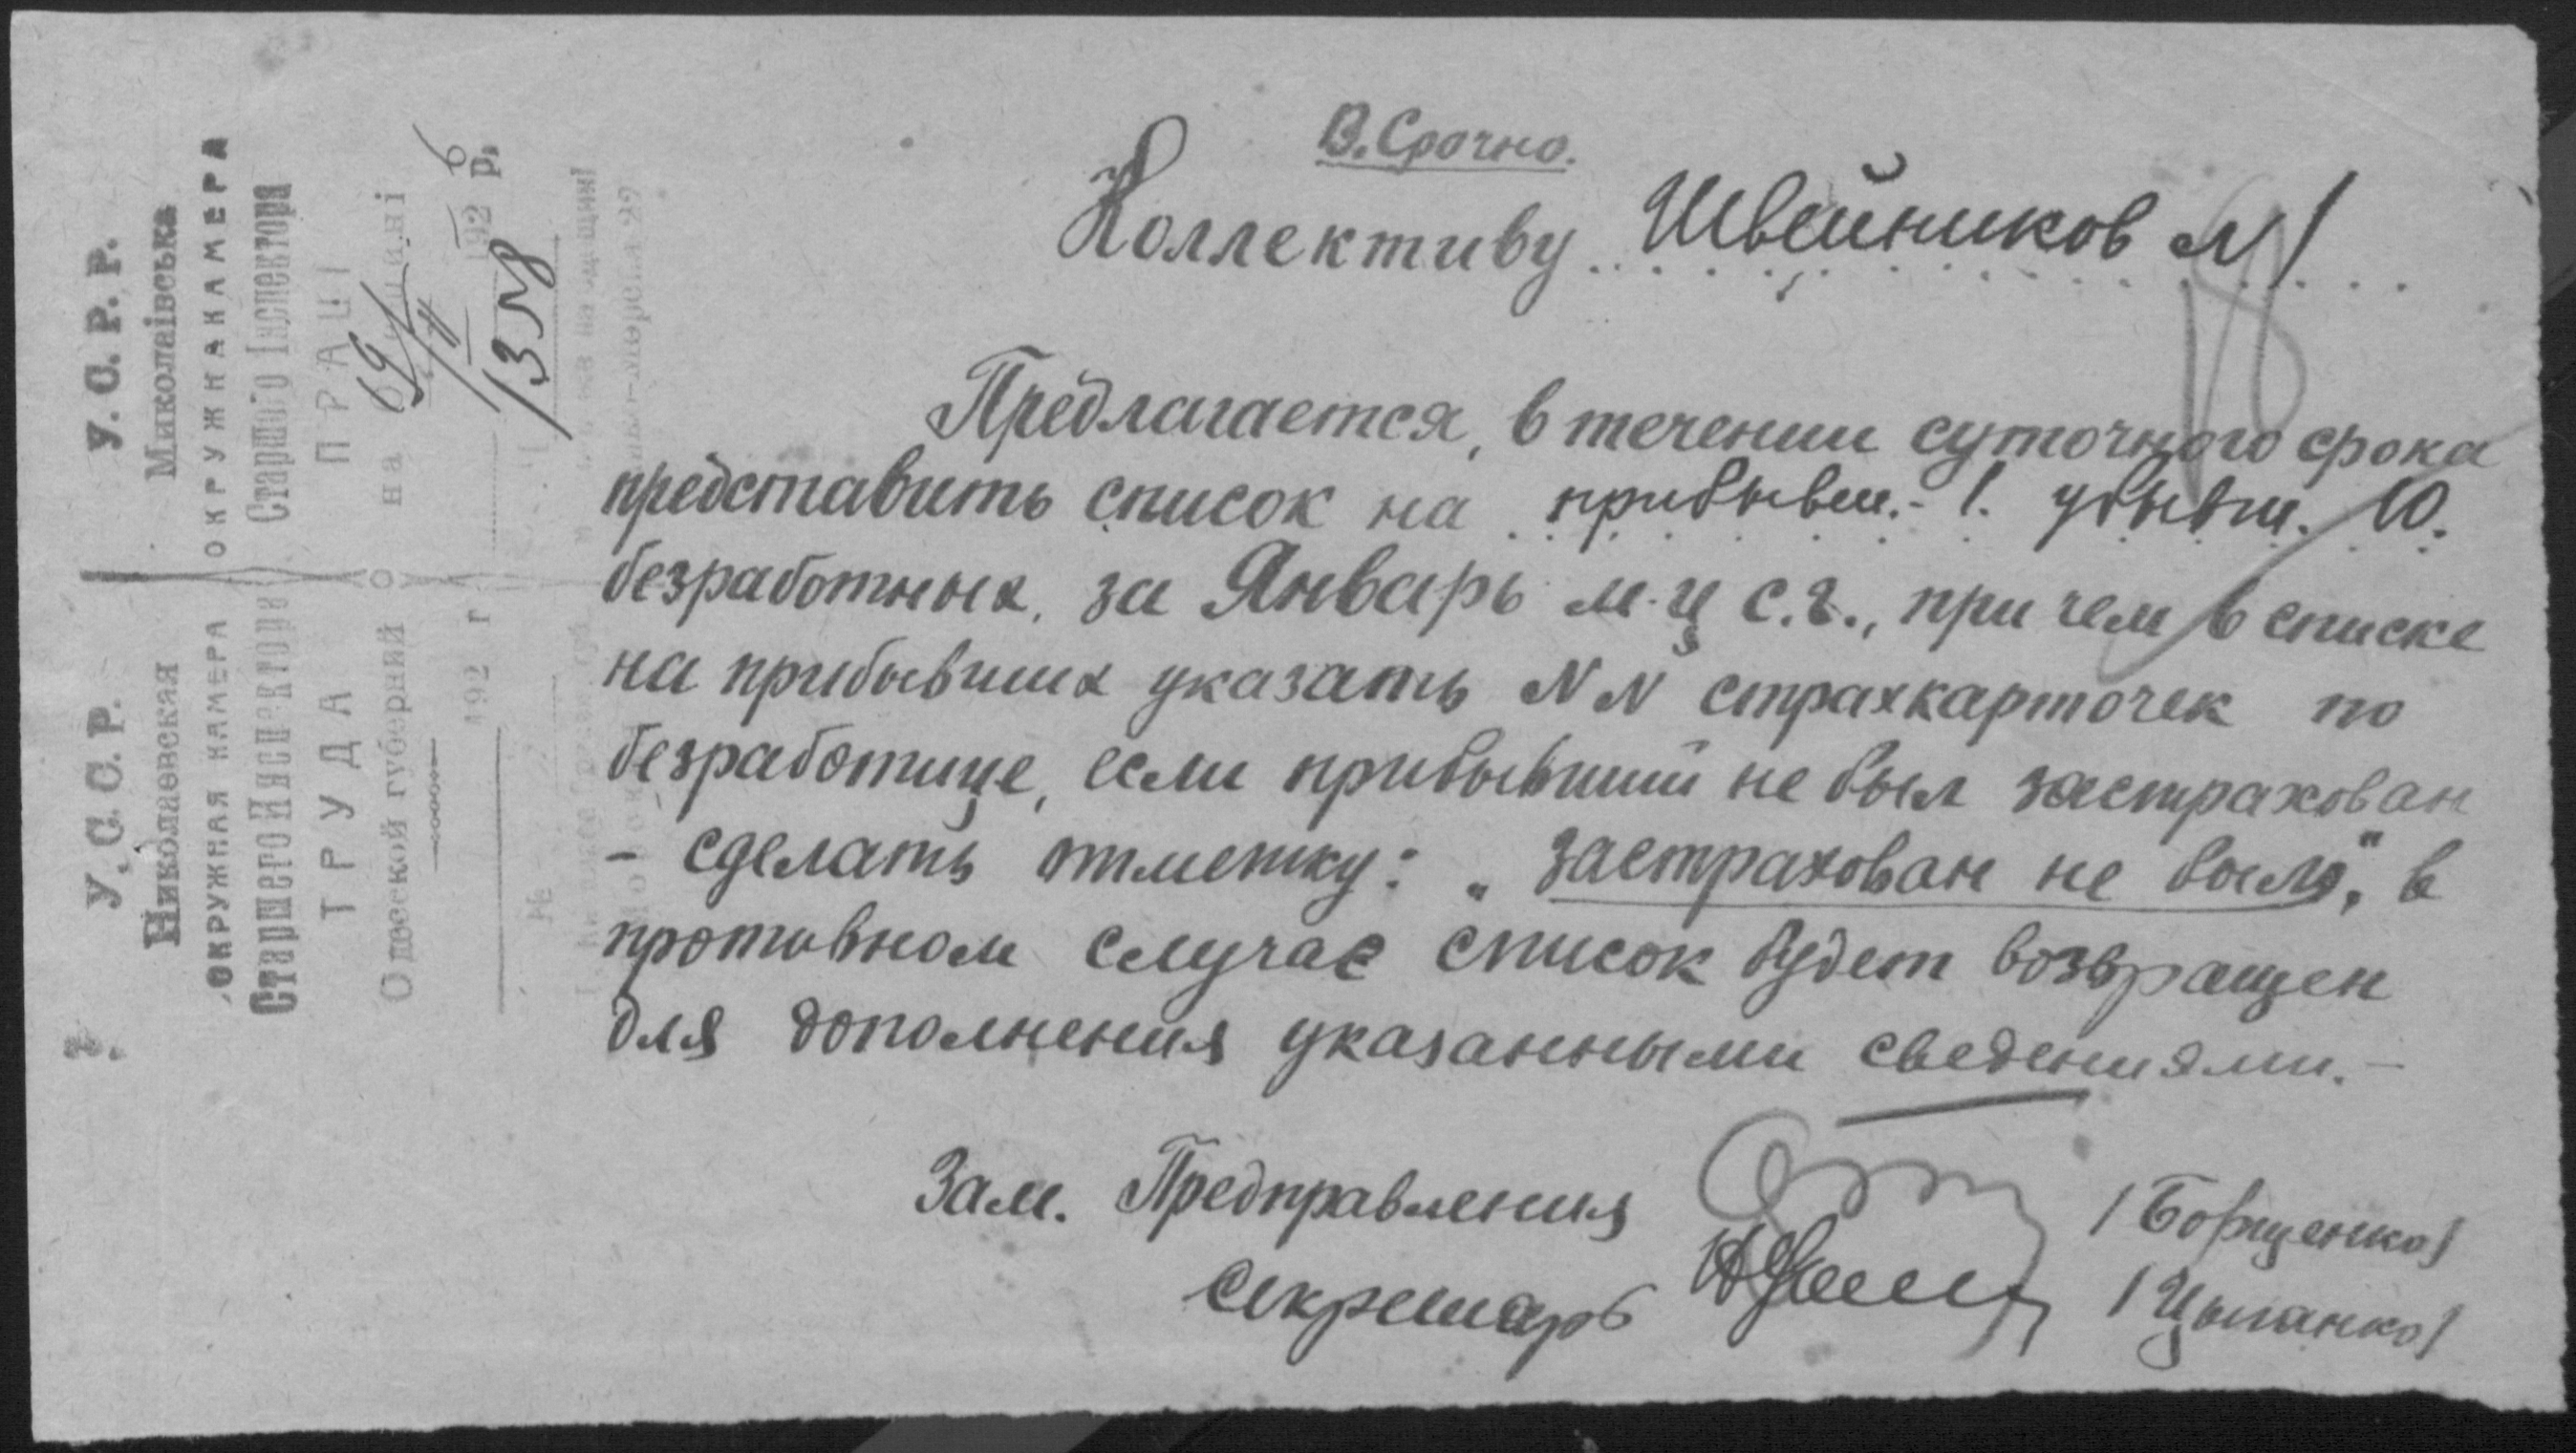 В. Срочно.
Коллективу Швейников N 1
Предлагается, в течении суточного срока
представить список на прибывш. - 1. убывш. 10.
безработных, за Январь м-ц с.г., при чем в списке
на прибывших указать NN страхкарточек по
безработице, если прибывший не был застрахован
- сделать отметку: „застрахован не был", в
противном случае список будет возвращен
для дополнения указанными сведениями. -
Зам. Предправления /Борщенко/
Секретарь /Цыганко/
У. С. Р. Р.
Миколаївська
ОКРУЖНА КАМЕРА
Старшого Інспектора
ПРАЦІ
на
192 6 р.
У. С. С. Р.
Николаевская
ОКРУЖНАЯ КАМЕРА
Старшего Инспектора
ТРУДА
Одесской губернии
192 г
№